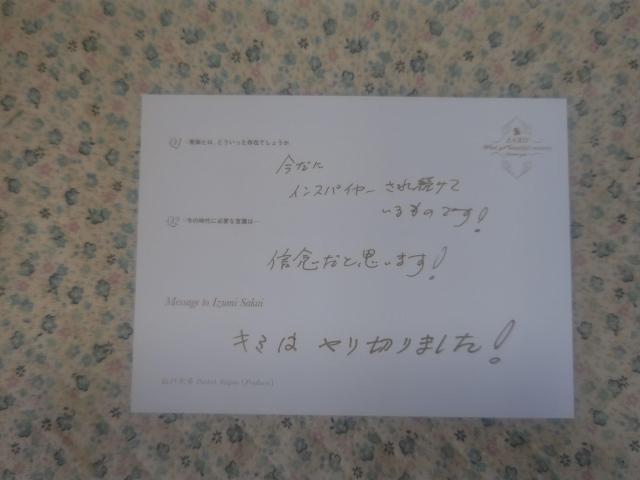 Q1 音楽とは、どういった存在でしょうか
ZARD
What a beautiful memory
今だに
インスパイヤーされ続けて
いるものです!
Q2 今の時代に必要な言葉は…
信念だと思います!
Message to Izumi Sakai
キミは やり切りました!
(Producer)